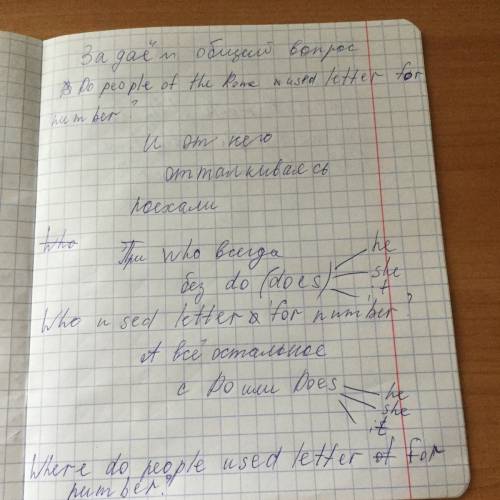 Задаём общий вопрос
Do people of the Rome used letter for
number?
И от него
отталкиваясь
поехали
Who При who всегда he
без do (does) she
it
Who used letter for number?
А всё остальное
с Do или Does he
she
it
Where do people used letter for
number?